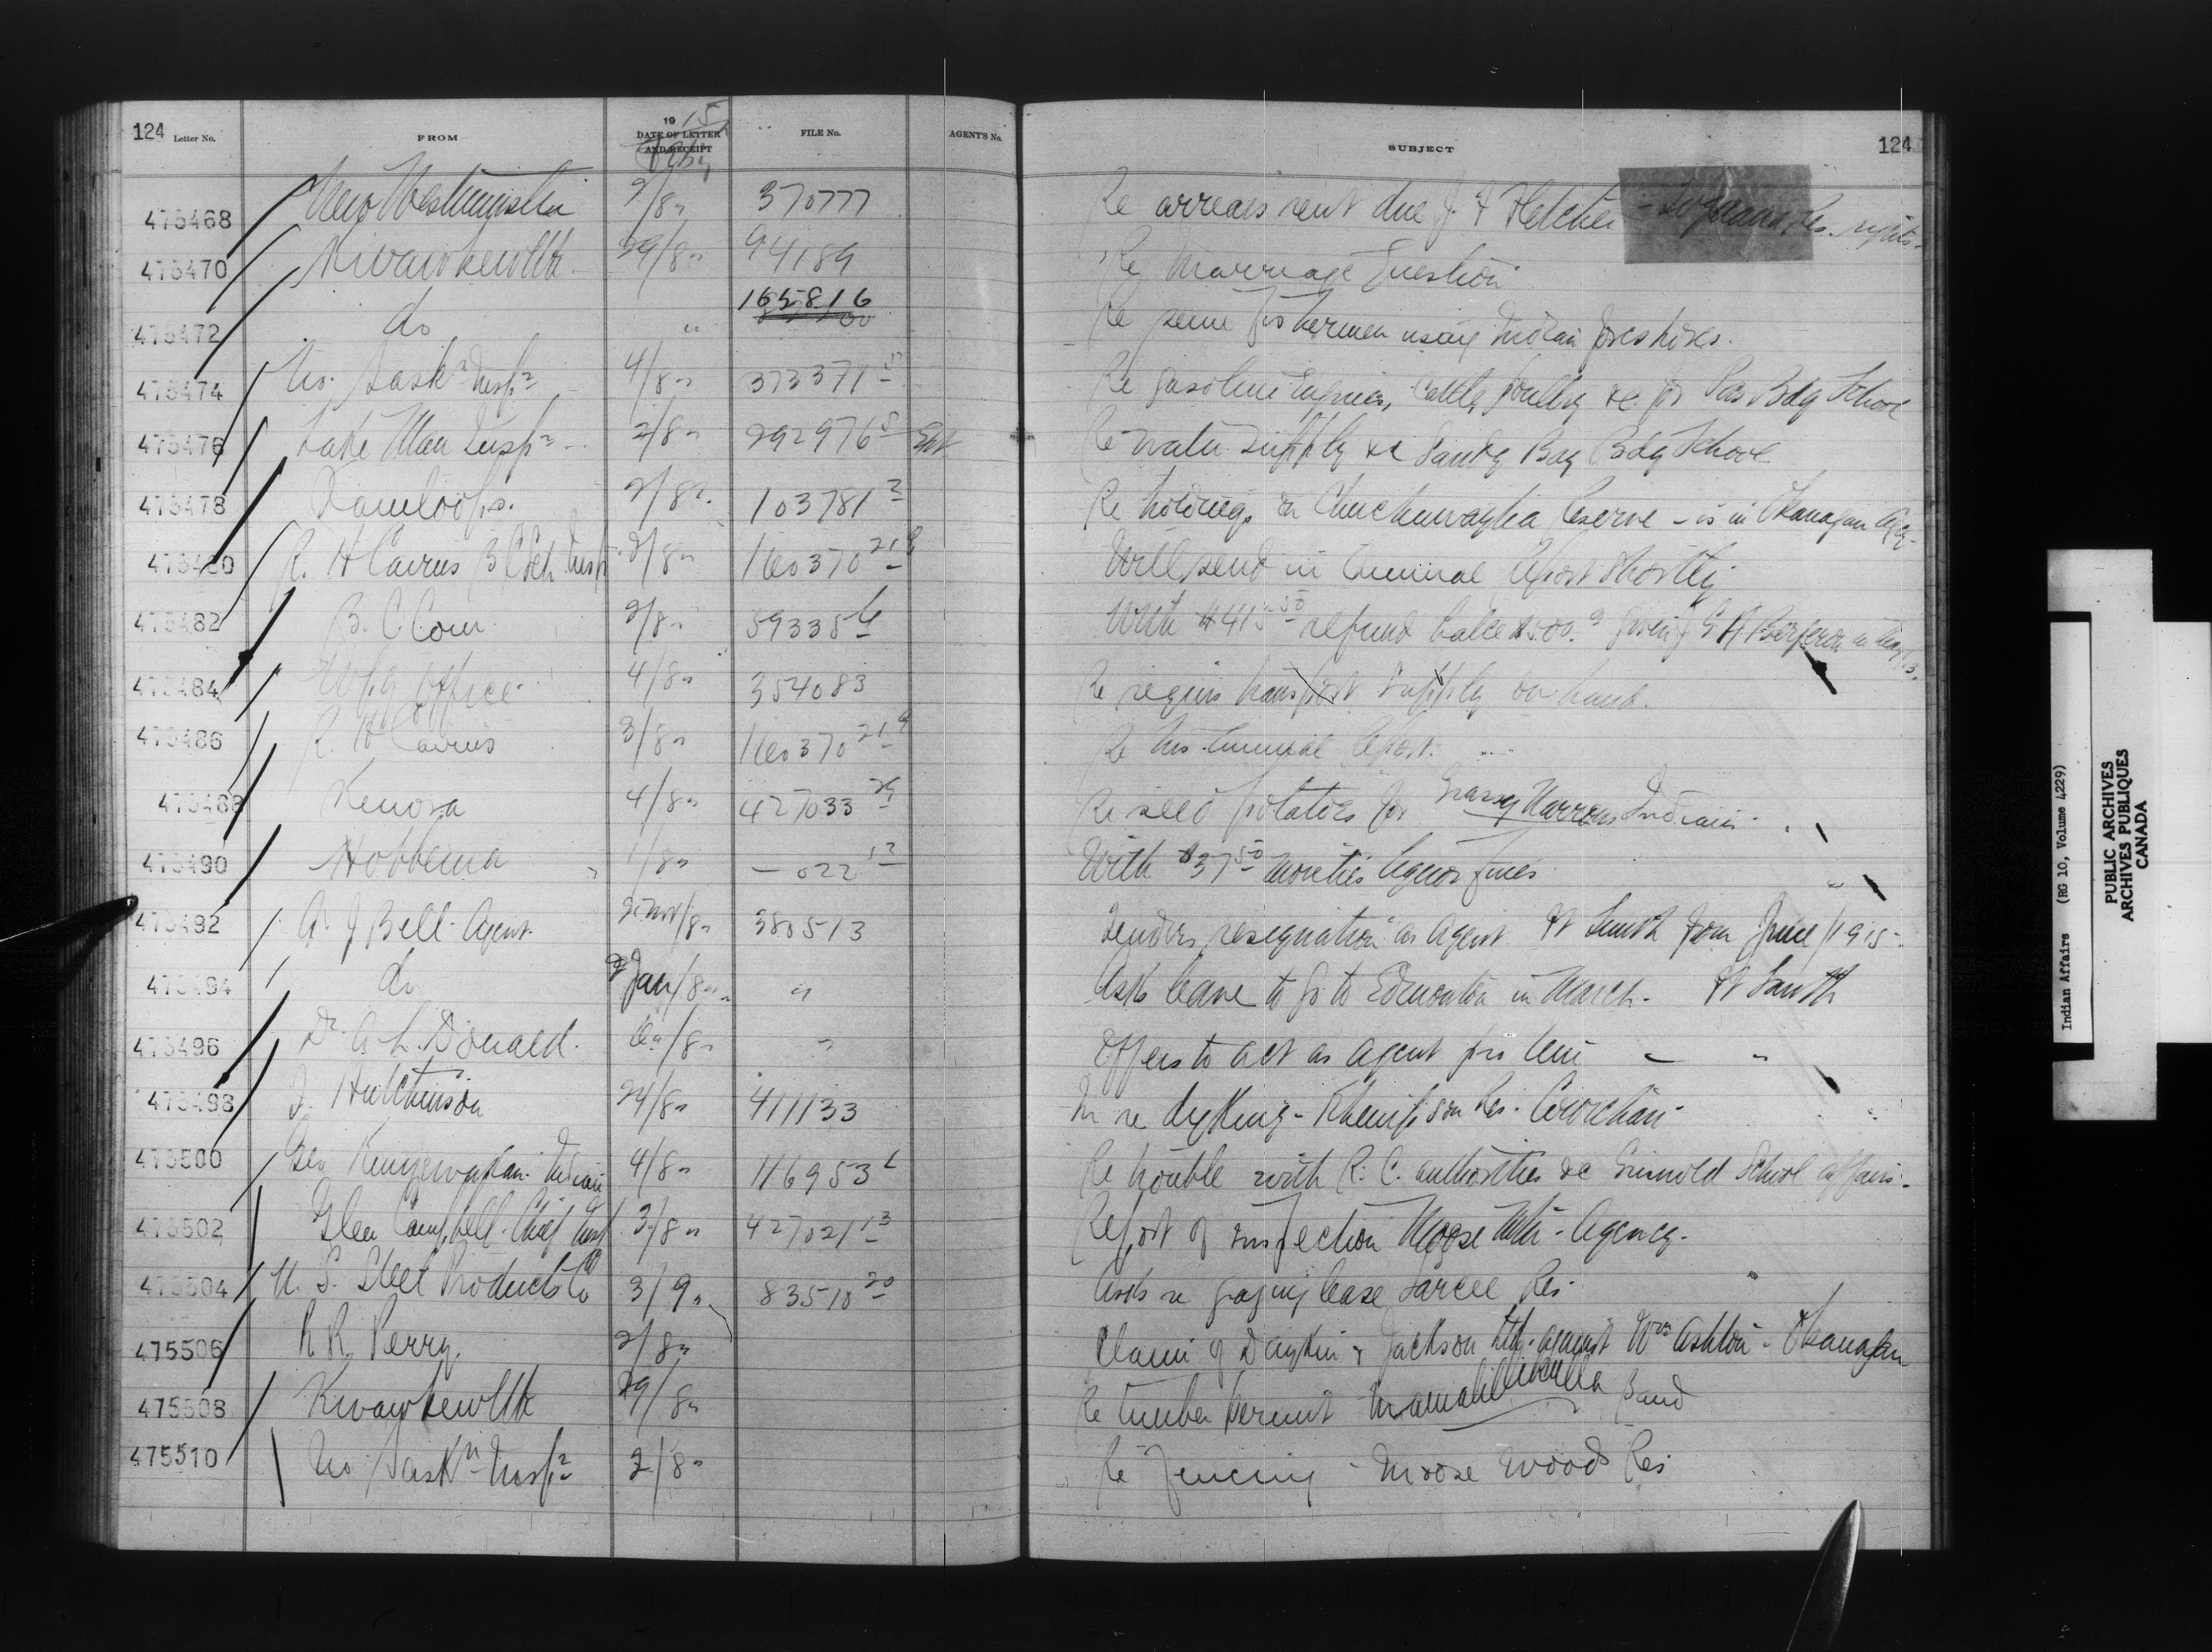 124 Letter No. FROM 1915 DATE OF LETTER AND RECEIPT Feby FILE No. AGENT'S No. SUBJECT 124
475468 New Westminster 2/8 " 370777 Re arrears rent due J. F Fletcher Res. rights
475470 Kwawkewlth 29/8 " 94189 Re Marriage Question
475472 do " 165816 Re seine fishermen using Indian foreshores.
475474 No. Sask n Insp 4/8 " 373371 5 Re gasoline Engines, Cattle, poultry &c. for Pas Bdg School
475476 Lake Man Insp 2/8 " 292976 5 Re water supply &c Sandy Bay Bdg School
475478 Kamloops. 2/8 " 103781 2 Re holdings on Chuchuwayha Reserve - is in Okanagan Agcy
475480 R. H Cairns B C Sch. Insp 2/8 " 160370 21 Will send in Annual Report shortly
475482 B. C. Com 2/8 " 59335 4 With refund balce $500. given in May/13.
475484 Wpg Office 4/8 " 354083 Re requis transport supply on hand.
475486 R. H Cairns 3/8 " 160370 21 Re his Annual Report.
475488 Kenora 4/8 " 427033 Re seed potatoes for Grassy Narrows Indians
475490 Hobbema 1/8 " — 022 13 With $37 50 moieties liquor fines
475492 A. J Bell. Agent. /8 " 380513 Tenders resignation as Agent Ft Smith from June/1915.
475494 do Jan/8 " " Asks leave to go to Edmonton in March. Ft Smith
475496 Dr. A. L. Donald. /8 " " Offers to act as Agent pro tem " "
475498 J. Hutchinson 24/8 " 411133 In re dyking - Res. Cowichan
475500 Geo Indian 4/8 " 116953 Re trouble with R. C. authorities &c School affairs.
475502 Glen Campbell. Chief Insp 3/8 " 427021 13 Report of inspection Moose Mtn. Agency.
475504 U. S. Steel Products Co 3/9 " 83510 20 Asks re grazing lease Sarcee Res.
475506 R R. Perry. 2/8 " Claim of & Jackson Ltd. against Wm Ashton - Okanagan
475508 Kwawkewlth 29/8 " Re timber permit Mamalillikulla Band
475510 No Sask n Insp 2/8 " Re fencing Moose Woods Res
Indian Affairs (RG 10, Volume 4229)
PUBLIC ARCHIVES
ARCHIVES PUBLIQUES
CANADA